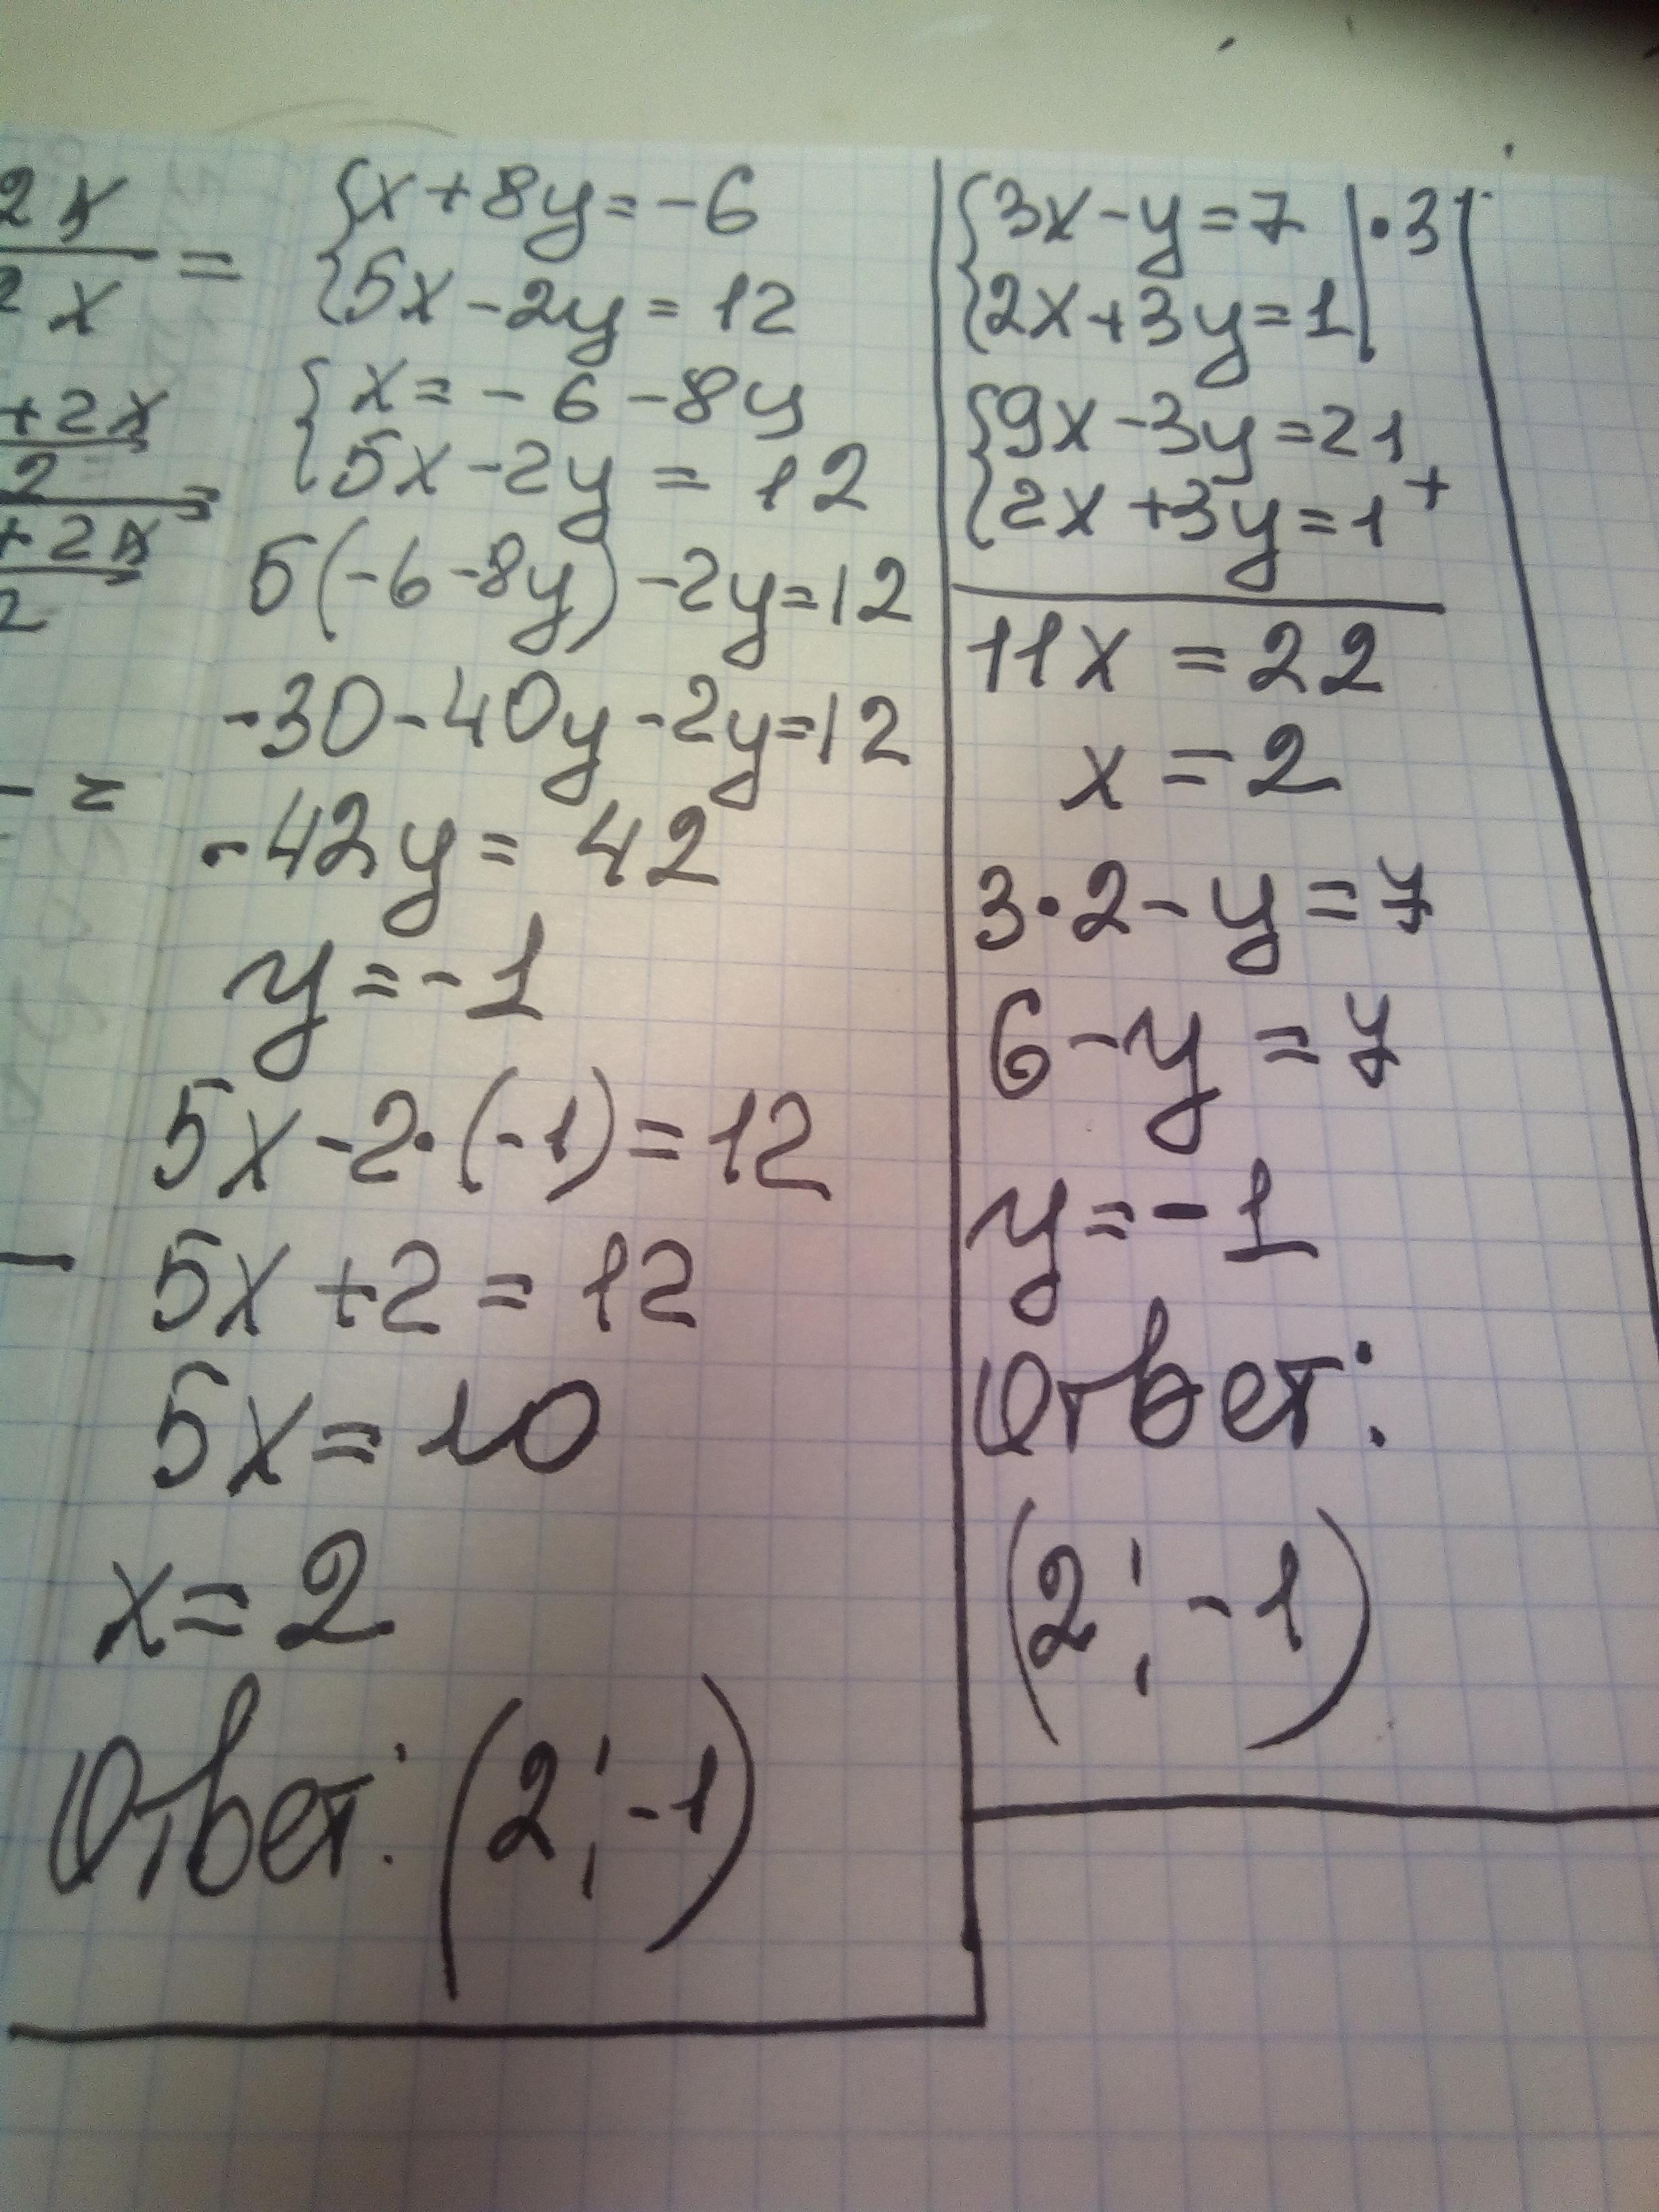 2x
2 x
=
+2x
2
=
+2x
2
- =
-
{x+8y=-6
{5x-2y=12
{x=-6-8y
{5x-2y=12
5(-6-8y)-2y=12
-30-40y-2y=12
-42y=42
y=-1
5x-2·(-1)=12
5x+2=12
5x=10
x=2
Ответ: (2;-1)
{3x-y=7 |·3|
{2x+3y=1|
{9x-3y=21
{2x+3y=1 +
11x=22
x=2
3·2-y=7
6-y=7
y=-1
Ответ:
(2;-1)